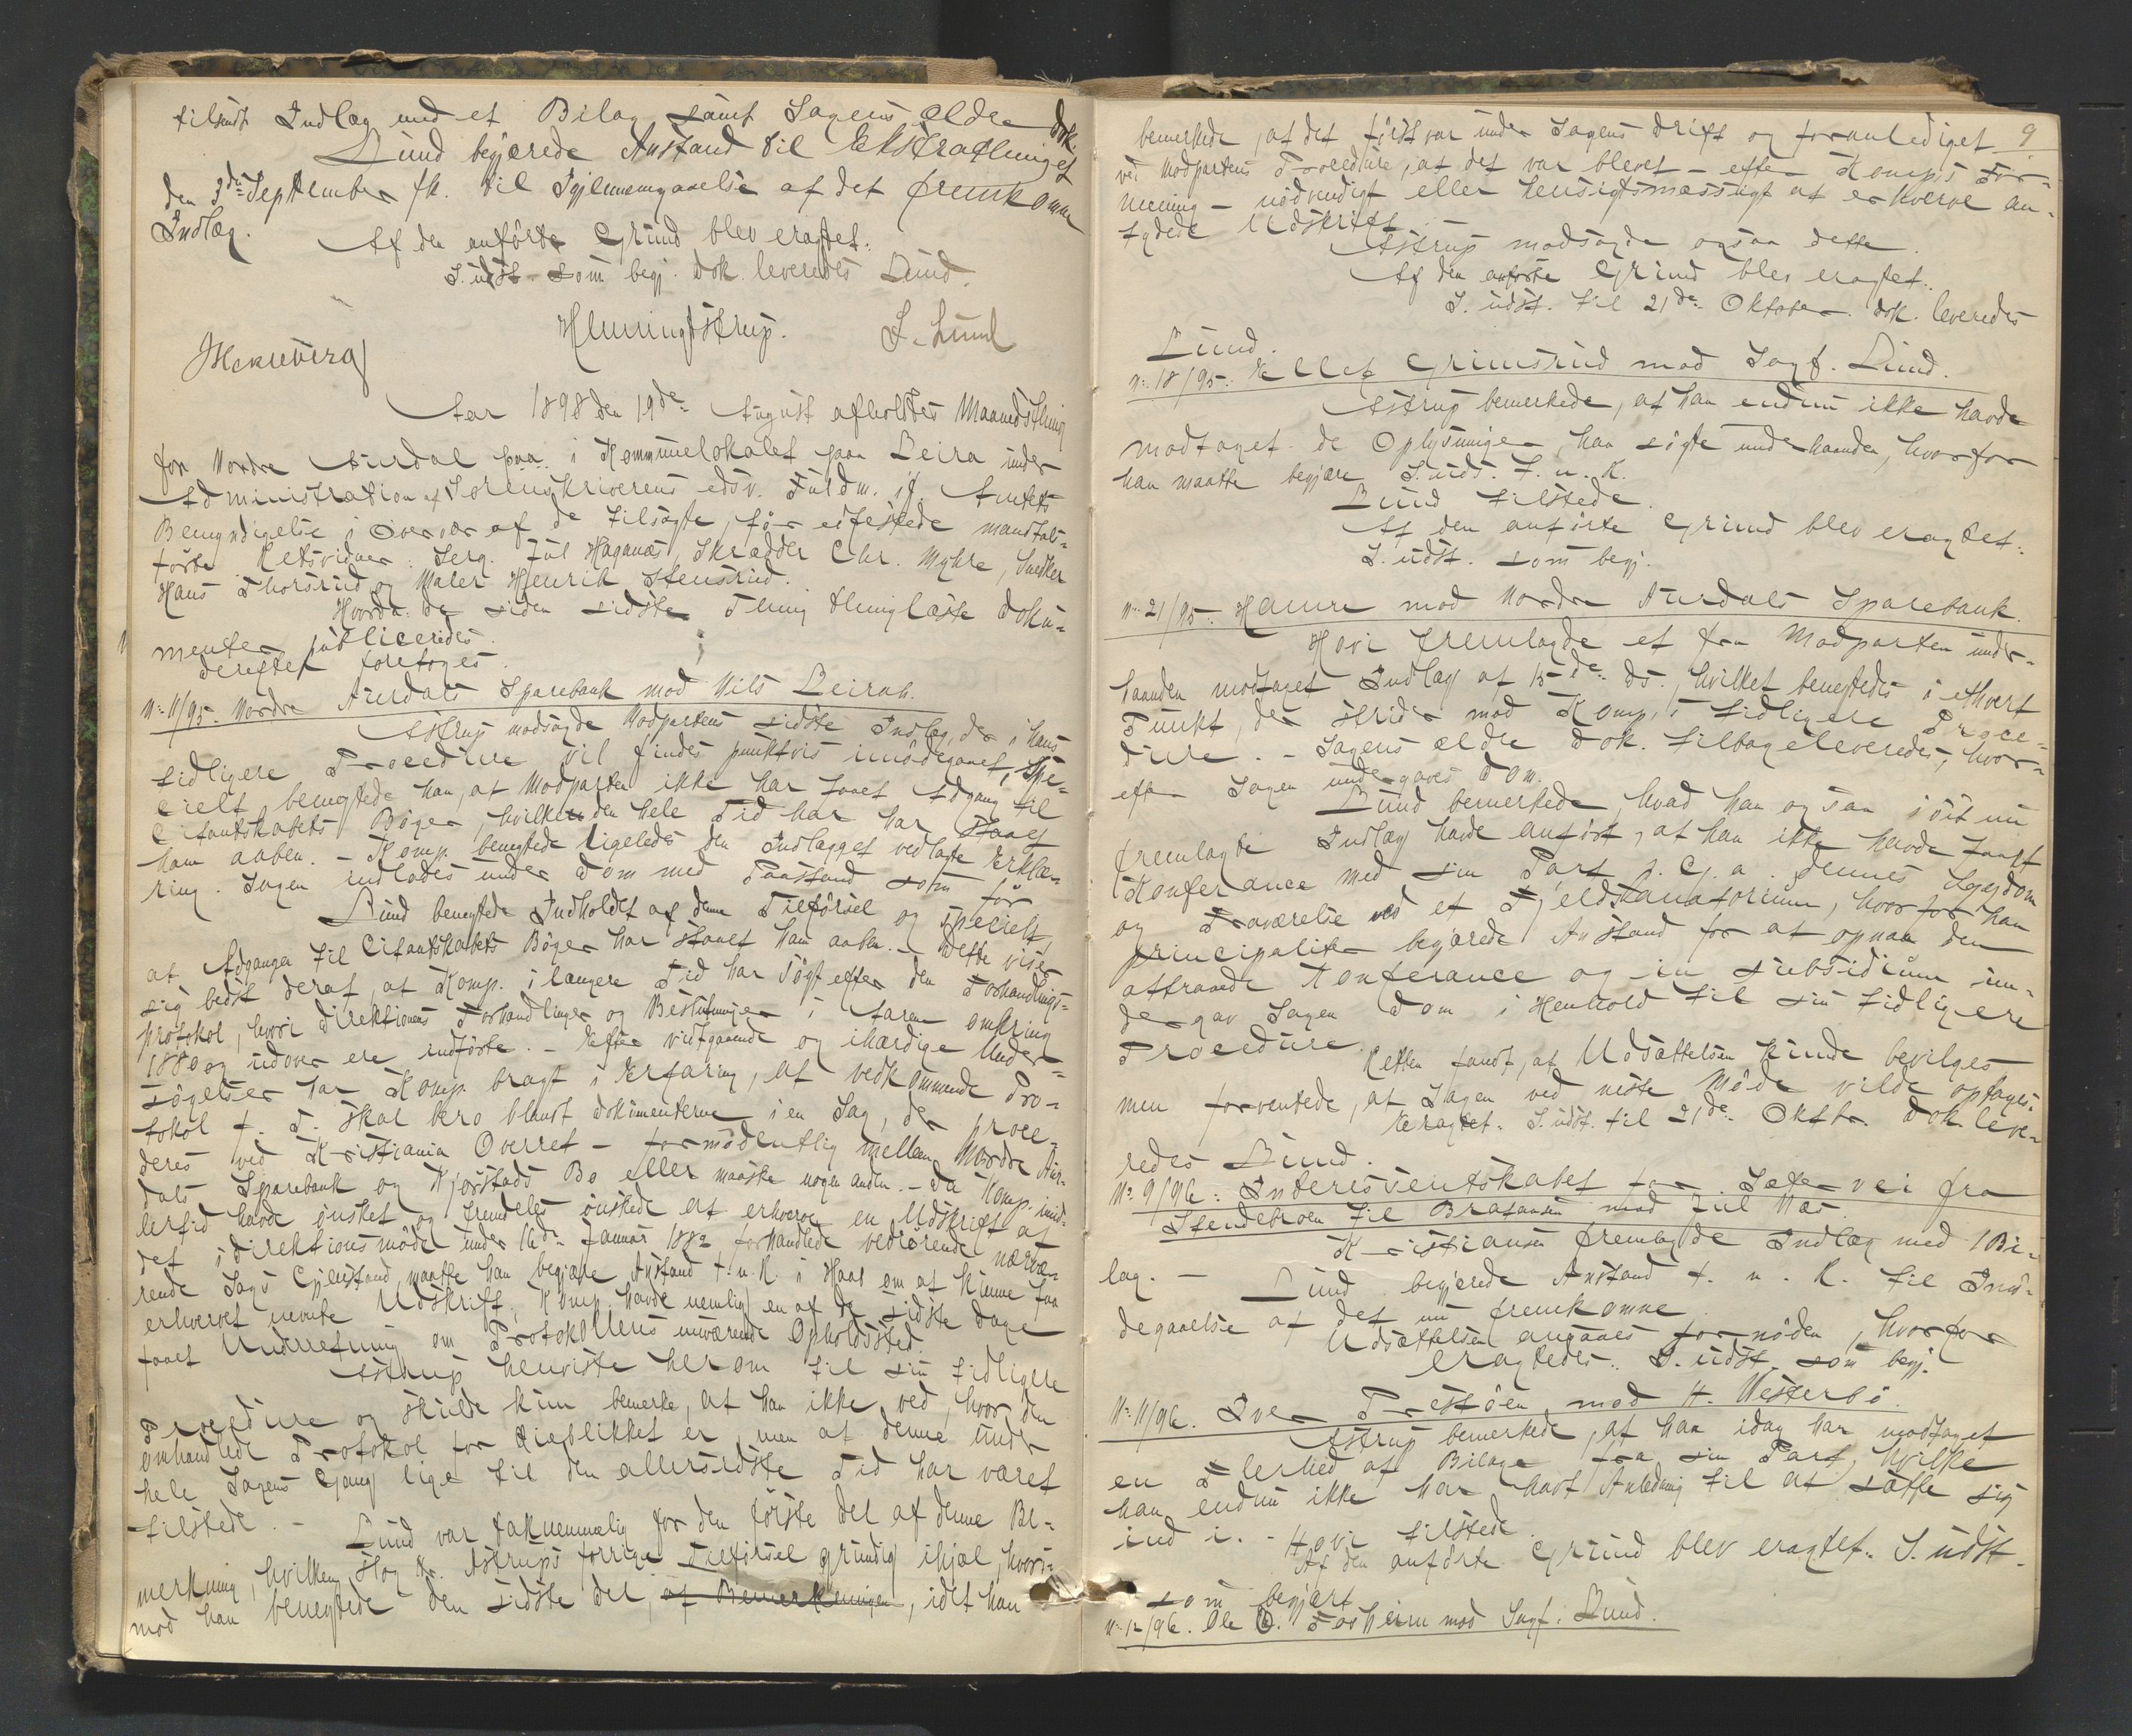 tilsendt Indlæg med et Bilag samt Sagens ældre Dok.
Lund begjærede Anstand til Ekstrathinget
den 3die September fk. til Igjennemgaaelse af det fremkomne
Indlæg.
Af den anførte Grund blev eragtet:
S. udst. som begj. Dok. leveredes Lund.
Henningstrup. L. Lund
Aar 1898 den 19de August afholdtes Maanedsthing
for Nordre Aurdal paa i Kommunelokalet paa Leira under
Administration af Sorenskriverens edsv. Fuldm. if. Amtets
Bemyndigelse i Overvær af de tilsagte, før edfæstede mandtals-
førte Retsvidner: Serg. Jul Haganæs, Skrædder Chr. Myhre, Snedker
Hans Thorsrud og Maler Henrik Stensrud.
Hvorda: de siden sidste Thing thinglæste Doku-
menter publiceredes.
Derefter foretoges
No 11/95. Nordre Aurdals Sparebank mod Nils Leirah.
Astrup modsagde Modpartens sidste Indlæg, der i hans
tidligere Procedure vil findes punktvis imødegaaet, spe-
cielt benegtede han, at Modparten ikke har faaet Adgang til
Citantskabets Bøger, hvilken den hele Tid har har staaet
ham aaben. - Komp. benegtede ligeledes den Indlægget vedlagte Erklæ-
ring. Sagen indlodes under Dom med Paastand som før
Lund benegtede Indholdet af denne Tilførsel og specielt,
at Adgangen til Citantskabets Bøger har staaet ham aaben. - Dette viser
sig bedst deraf, at Komp. i længere Tid har søgt efter den Forhandlings-
protokol, hvori Direktionens Forhandlinger og Beslutninger i Aarene omkring
1880 og udover ere indførte. - Efter vidtgaaende og ihærdige Under-
søgelser har Komp. bragt i Erfaring, at vedkommende Pro-
tokol f. T. skal bero blandt Dokumenterne i en Sag, der proce-
deres ved Kristiania Overret - formodentlig mellem Nordre Aur-
dals Sparebank og Kjørstads Bo eller maaske nogen anden. - Da Komp. imid-
lertid havde ønsket og fremdeles ønskede at erhverve en Udskrift af
det i Direktionsmøde under 16de Januar 1882 forhandlede vedrørende nærvæ-
rende Sags Gjenstand, maatte han begjære Anstand t. n. R. i Haab om at kunne faa
erhvervet nevnte Udskrift, Komp. havde nemlig en af de sidste Dage
faaet Underretning om Protokollens nuværende Opholdssted.
Astrup henviste herom til sin tidligere
Procedure og skulde kun bemerke, at han ikke ved, hvor den
omhandlede Protokol for Øieblikket er, men at denne under
hele Sagens Gang lige til den allersidste Tid har været
tilstede. -
Lund var taknemmelig for den første Del af denne Be-
merkning, hvilken slog Hr. Astrups forrige Tilførsel grundig ihjæl, hvori-
mod han benegtede den sidste Del, af Bemerkningen, idet han
9
bemerkede, at det først var under Sagens Drift og foranlediget
ved Modpartens Procedure, at det var blevet - efter Komps For-
mening - nødvendigt eller hensigtsmæssigt at erhverve an-
tydede Udskrift. -
Astrup modsagde ogsaa dette.
Af den anførte Grund blev eragtet:
S. udst. til 21de Oktober. Dok. leveredes
Lund.
No 18/95. Ellef Grimsrud mod Sagf. Lund.
Astrup bemerkede, at han endnu ikke havde
modtaget de Oplysninger han søgte underhaanden, hvorfor
han maatte begjære S. uds. t. n. R.
Lund tilstede.
Af den anførte Grund blev eragtet:
S. udst. som begj.
No 21/95. Hamre mod Nordre Aurdals Sparebank.
Hovi fremlagde et fra Modparten under-
haanden modtaget Indlæg af 15de ds., hvilket benegtedes i ethvert
Punkt, der strider mod Komp.s tidligere Proce-
dure. - Sagens ældre Dok. tilbageleveredes, hvor-
efter Sagen undergaves Dom.
Lund bemerkede, hvad han ogsaa i sit nu
fremlagte Indlæg havde anført, at han ikke havde faaet
Konferance med sin Part p. G. a. dennes Sygdom
og Fraværelse ved et Fjeldsanatorium, hvorfor han
principaliter begjærede Anstand for at opnaa den
attraaede Konferance og in subsidium un-
dergav Sagen Dom i Henhold til sin tidligere
Procedure.
Retten fandt, at Udsættelsen kunde bevilges
men forventede, at Sagen ved neste Møde vilde optages.
Eragtet: S. udst. til 21de Oktbr. Dok. leve-
redes Lund.
No 9/96: Interessentskabet for Sætervei fra
Stendebroen til Brataasen mod Jul Næs.
Kristiansen fremlagde Indlæg med 1 Bi-
lag. -
Lund begjærede Anstand t. n. R. til Imø-
degaaelse af det nu fremkomne.
Udsættelsen ansaaes fornøden, hvorfor
eragtedes: S. udst. som begj.
No 11/96. Iver Prestøen mod H. Westerbø.
Astrup bemerkede, at han idag har modtaget
en Flerhed af Bilage fra sin Part, hvilke
han endnu ikke har havt Anledning til at sætte sig
ind i. - Hovi tilstede.
Af den anførte Grund blev eragtet: S. udst.
som begjært
No 12/96. Ole O. Fosheim mod Sagf. Lund.